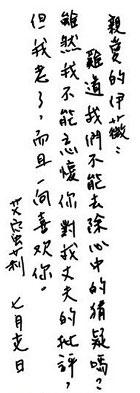 親愛的伊薇：
難道我們不能去除心中的猜疑嗎？
雖然我不能忘懷你對我丈夫的批評，
但我老了，而且向喜欢你。
艾蜜莉
七月 日